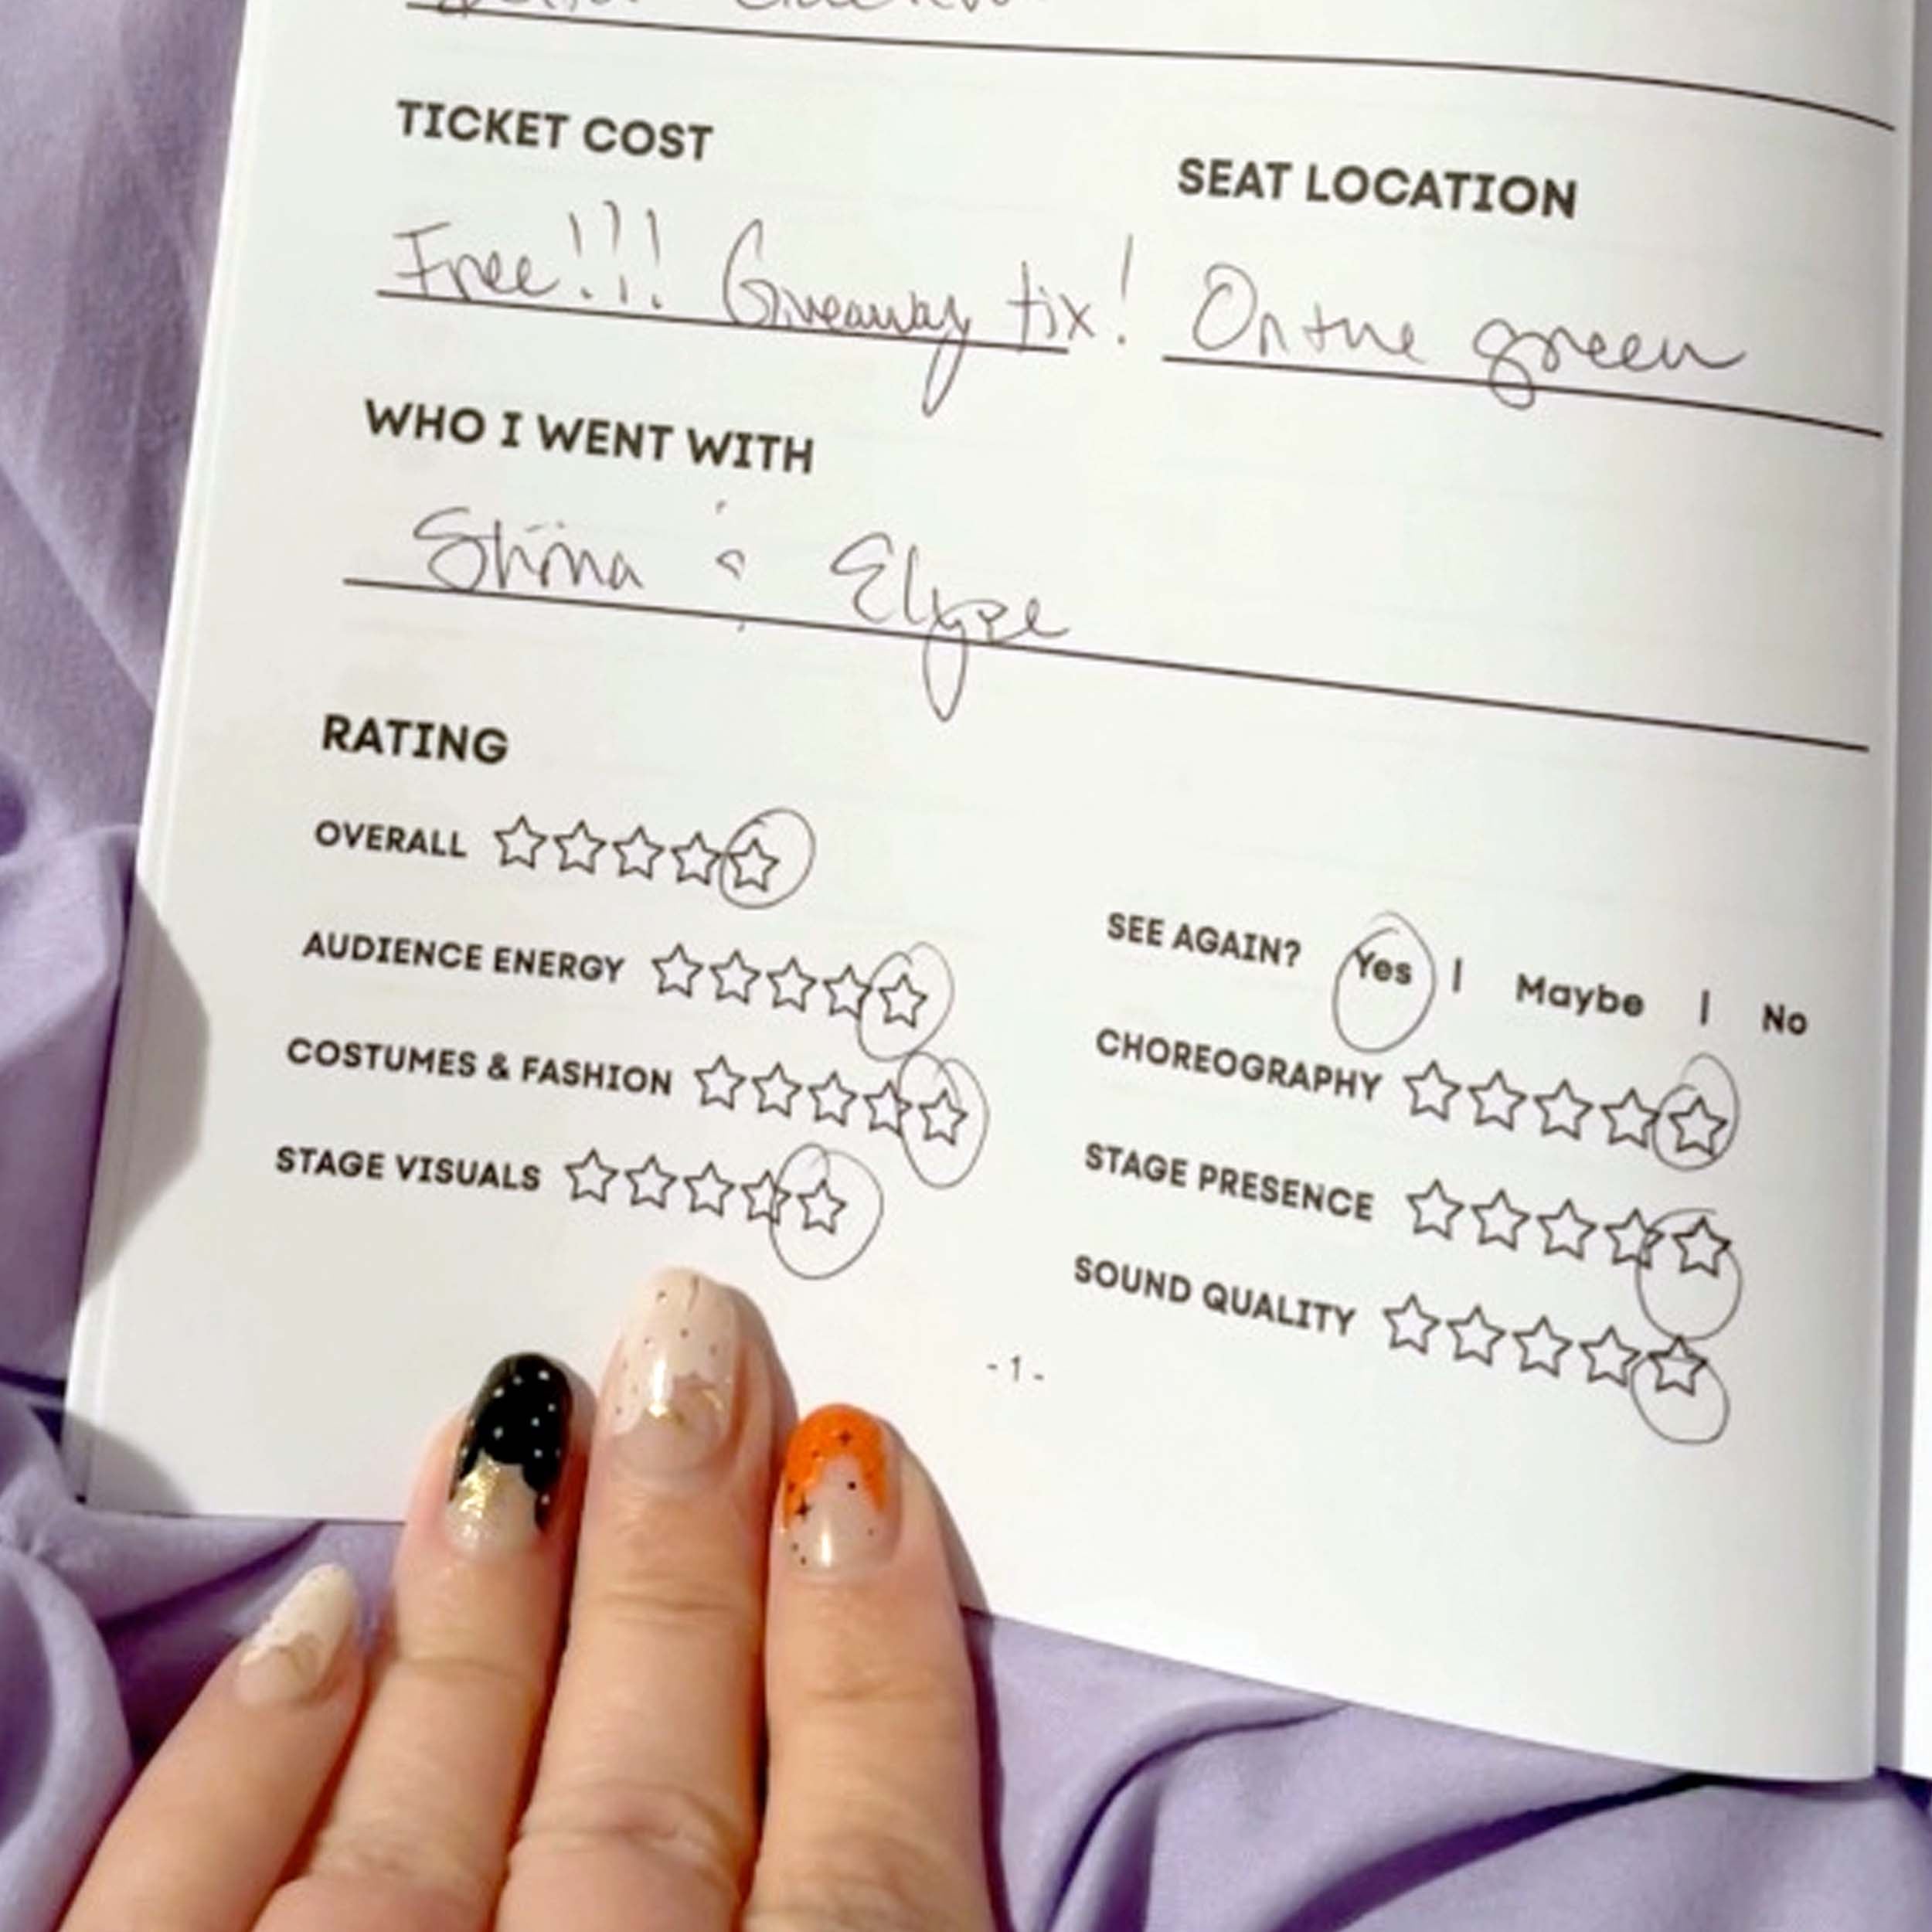 TICKET COST
SEAT LOCATION
Free!!! Giveaway tix!
On the green
WHO I WENT WITH
& Elyse
RATING
OVERALL ☆☆☆☆☆
SEE AGAIN? Yes | Maybe | No
AUDIENCE ENERGY ☆☆☆☆☆
CHOREOGRAPHY ☆☆☆☆☆
COSTUMES & FASHION ☆☆☆☆☆
STAGE PRESENCE ☆☆☆☆☆
STAGE VISUALS ☆☆☆☆☆
SOUND QUALITY ☆☆☆☆☆
- 1 -